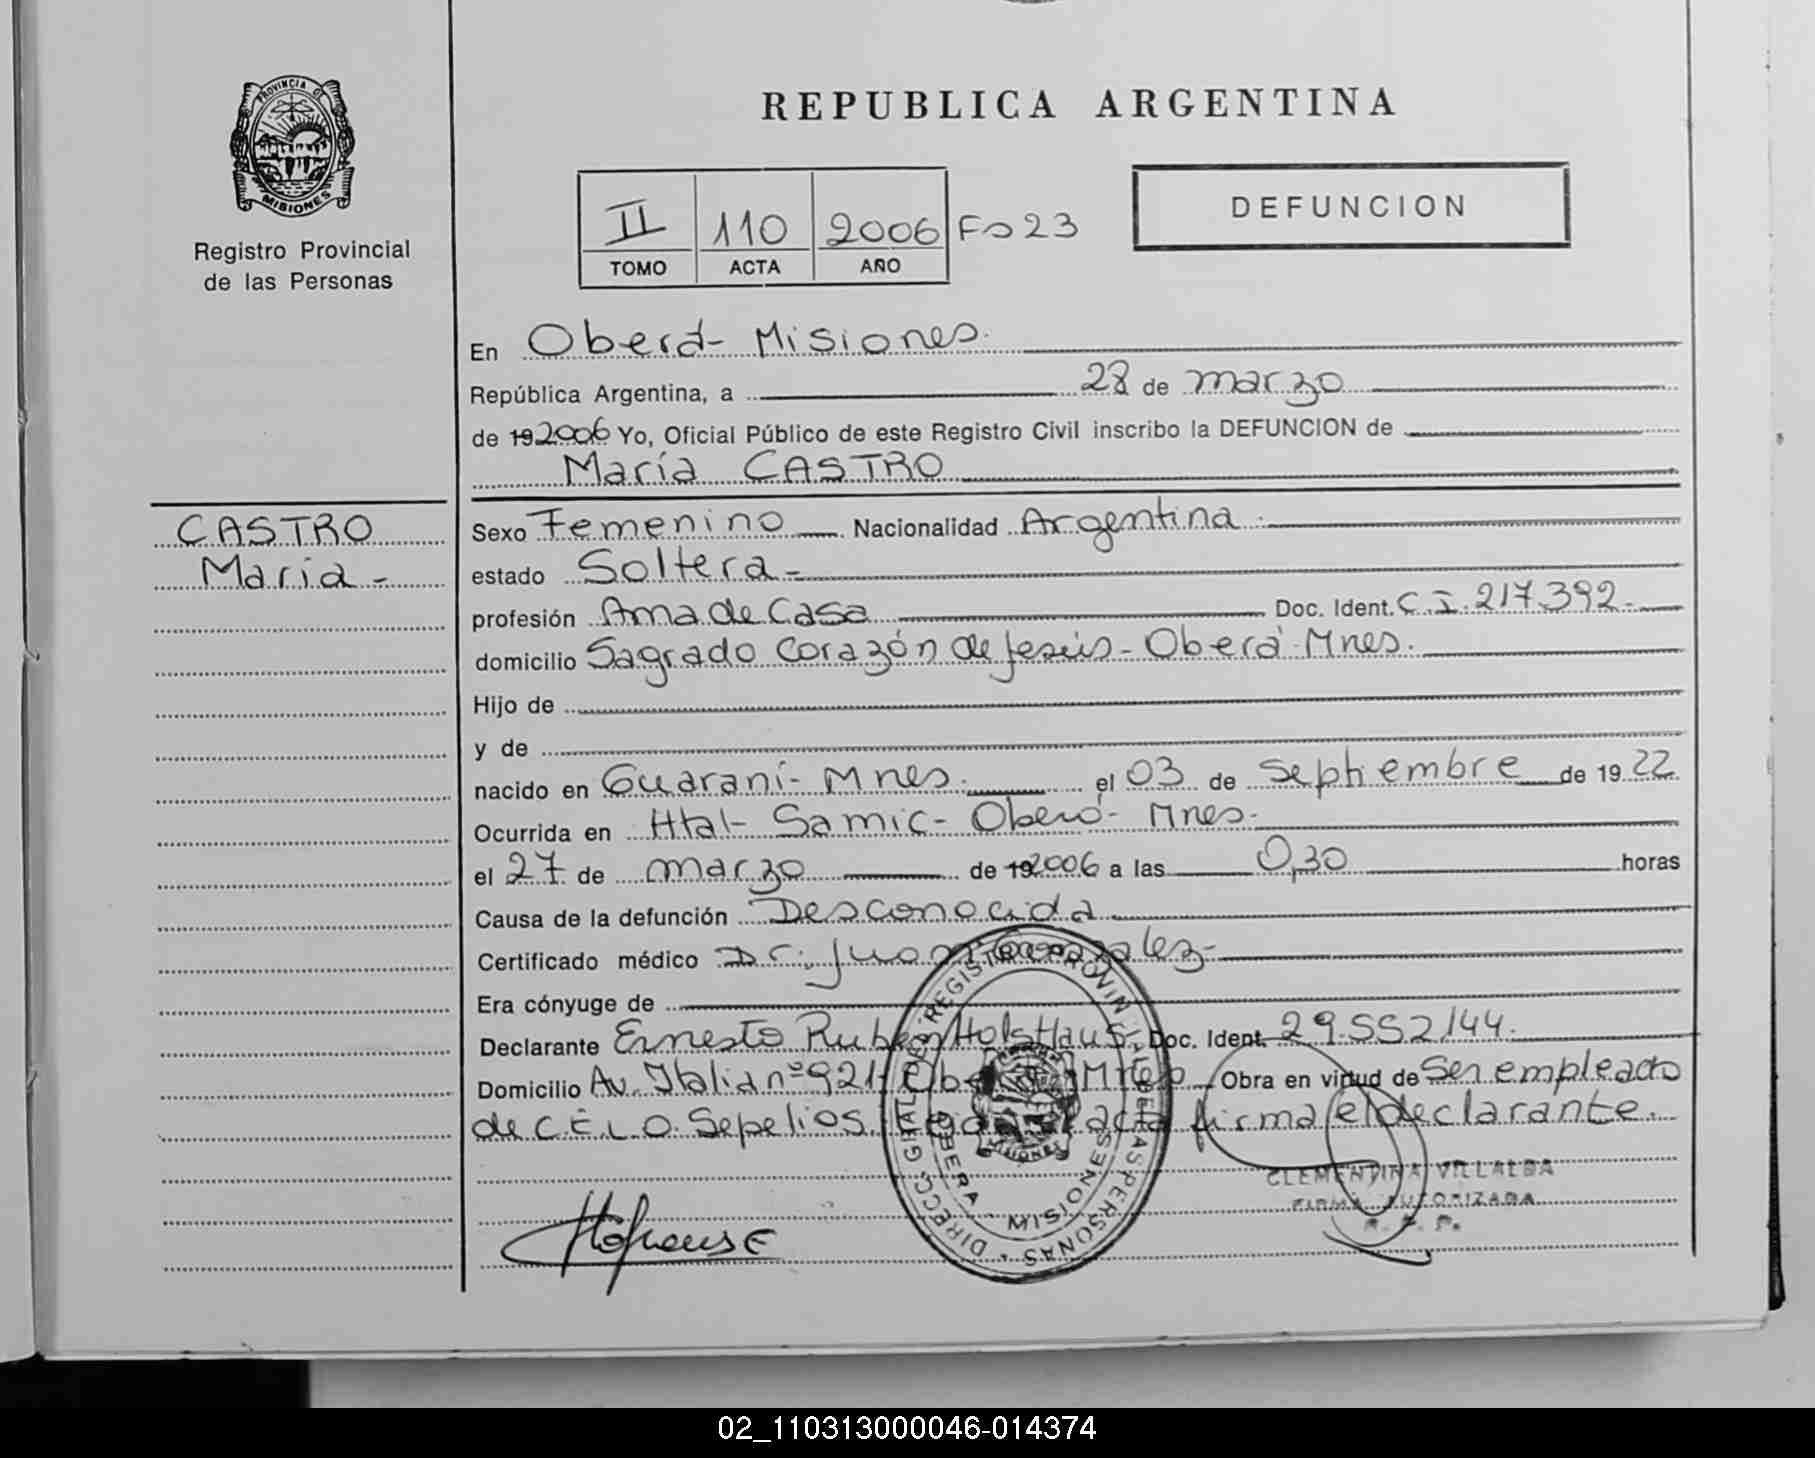 PROVINCIA DE
MISIONES
Registro Provincial
de las Personas
REPUBLICA ARGENTINA
II 110 2006 Fo 23
TOMO ACTA AÑO
DEFUNCION
En Oberá - Misiones.
República Argentina, a 28 de marzo
de 19 2006 Yo, Oficial Público de este Registro Civil inscribo la DEFUNCION de
María CASTRO
CASTRO
María -
Sexo Femenino Nacionalidad Argentina.
estado Soltera -
profesión Ama de Casa Doc. Ident. C.I. 217.392.-
domicilio Sagrado Corazón de Jesús - Oberá - Mnes.
Hijo de
y de
nacido en Guaraní - Mnes. el 03 de Septiembre de 19 22
Ocurrida en Htal - Samic - Oberá - Mnes.
el 27 de marzo de 19 2006 a las 0,30 horas
Causa de la defunción Desconocida
Certificado médico Dr. Juan Gonzalez -
Era cónyuge de
Declarante Ernesto Ruben Holsthaus Doc. Ident. 29.552144.
Domicilio Av. Italia nº 921 - Oberá - Mnes Obra en virtud de Ser empleado
de C.E.L.O. Sepelios. acta firma el declarante.
DIRECC. GRAL. DEL REGISTRO PROVINCIAL DE LAS PERSONAS
OBERA - MISIONES
CLEMENTINA VILLALBA
FIRMA AUTORIZADA
R. P. P.
02_110313000046-014374